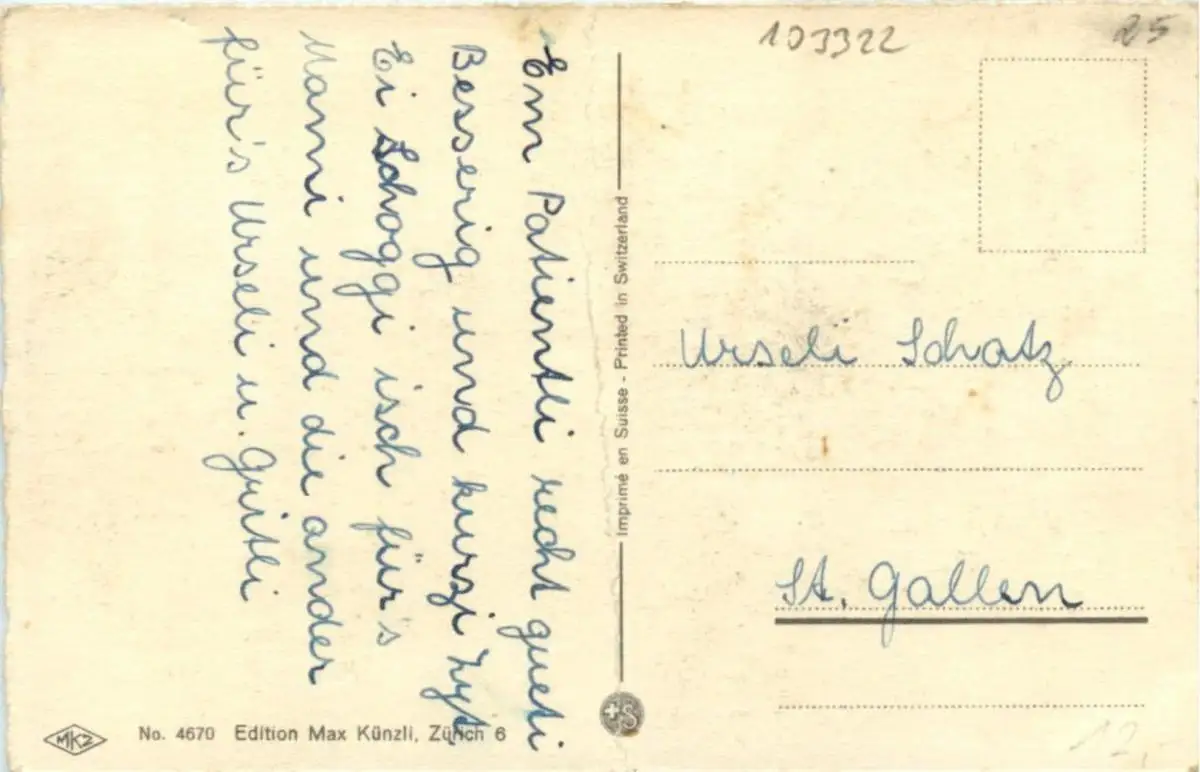 Em Patientli recht gueti
Besserig und kurzi Zyt.
Ei Schoggi isch für's
Mami und die ander
für's Urseli u. Gritli
103322
25
Imprimé en Suisse - Printed in Switzerland
Urseli Schatz
St. Gallen
+S
MKZ
No. 4670 Edition Max Künzli, Zürich 6
12.-